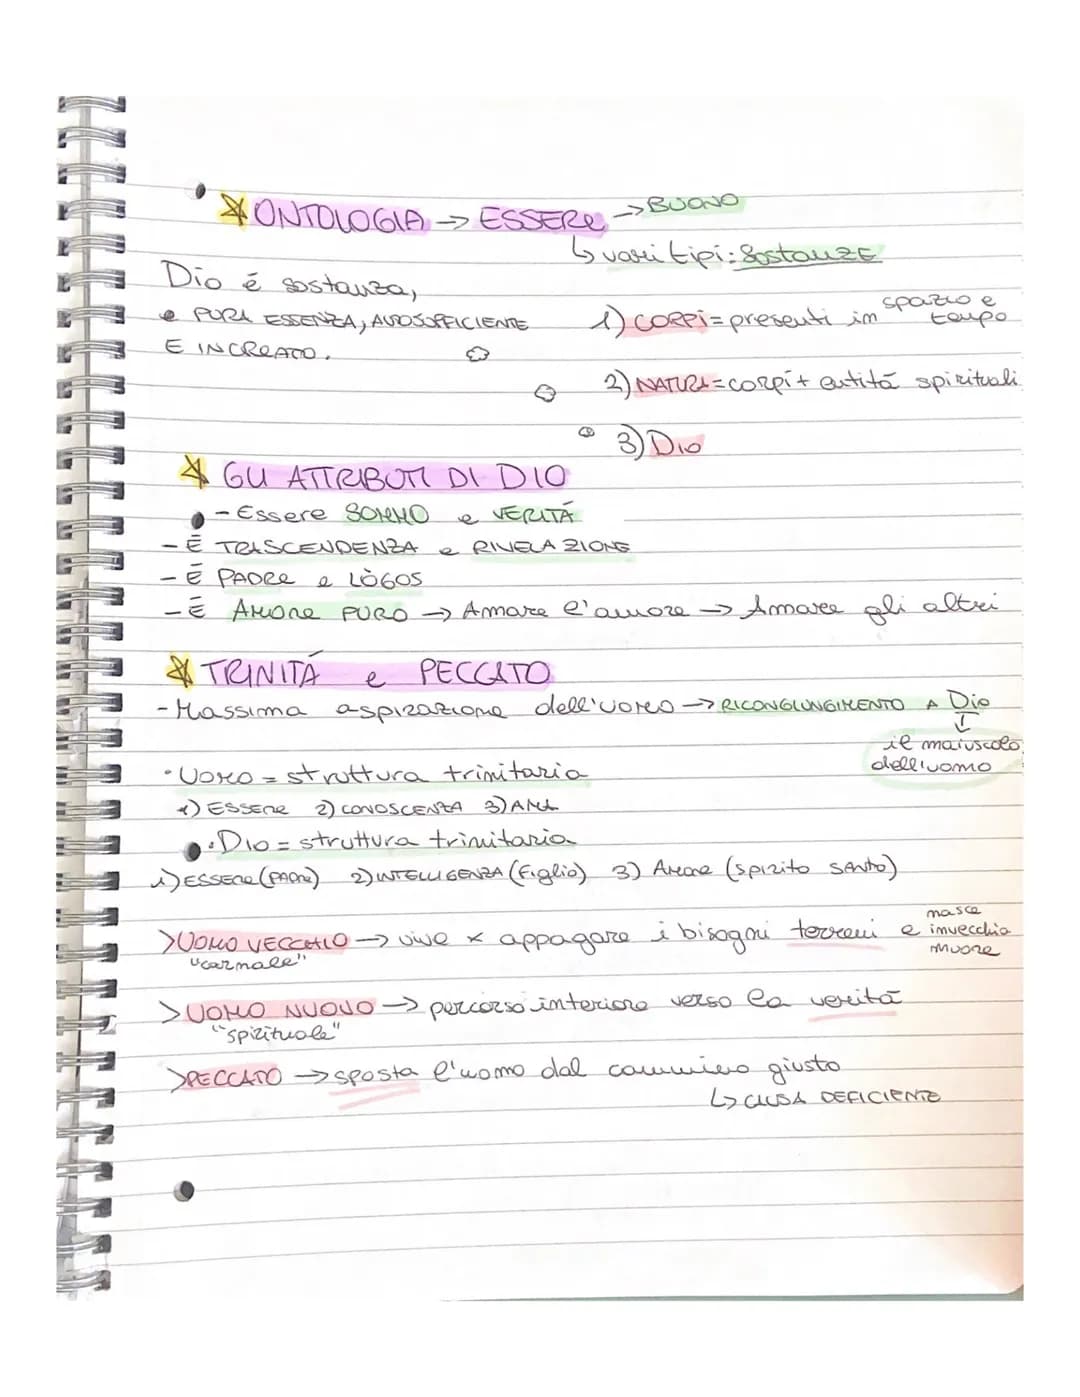 ONTOLOGIA → ESSERE → BUONO
↳ vari tipi: SostanzE
Dio é sostanza,
e PURA ESSENZA, AUTOSUFFICIENTE
E INCREATO.
1) CORPI = presenti in spazio e tempo
2) NATURA = corpi + entitá spirituali
3) DIO
GLI ATTRIBUTI DI DIO
- Essere SOMMO e VERITÁ
- É TRASCENDENZA e RIVELAZIONE
- É PADRE e LÒGOS
- É AMORE PURO → Amare l'amore → Amare gli altri
TRINITÁ e PECCATO
- Massima aspirazione dell'uomo → RICONGIUNGIMENTO A Dio
↓
il maiuscolo
dell'uomo
• Uomo = struttura trinitaria
1) ESSERE 2) CONOSCENZA 3) AMA
• Dio = struttura trinitaria
1) ESSERE (PADRE) 2) INTELLIGENZA (Figlio) 3) Amore (spirito santo)
> UOMO VECCHIO → vive x appagare i bisogni terreni e nasce invecchia muore
"carnale"
> UOMO NUOVO → percorso interiore verso la veritá
"spirituale"
> PECCATO → sposta l'uomo dal cammino giusto
↳ CAUSA DEFICIENTE